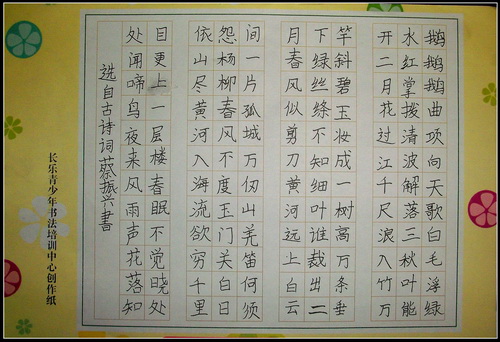 鹅鹅鹅曲项向天歌白毛浮绿
水红掌拨清波解落三秋叶能
开二月花过江千尺浪入竹万
竿斜碧玉妆成一树高万条垂
下绿丝绦不知细叶谁裁出二
月春风似剪刀黄河远上白云
间一片孤城万仞山羌笛何须
怨杨柳春风不度玉门关白日
依山尽黄河入海流欲穷千里
目更上一层楼春眠不觉晓处
处闻啼鸟夜来风雨声花落知
选自古诗词蔡振兴書
长乐青少年书法培训中心创作纸